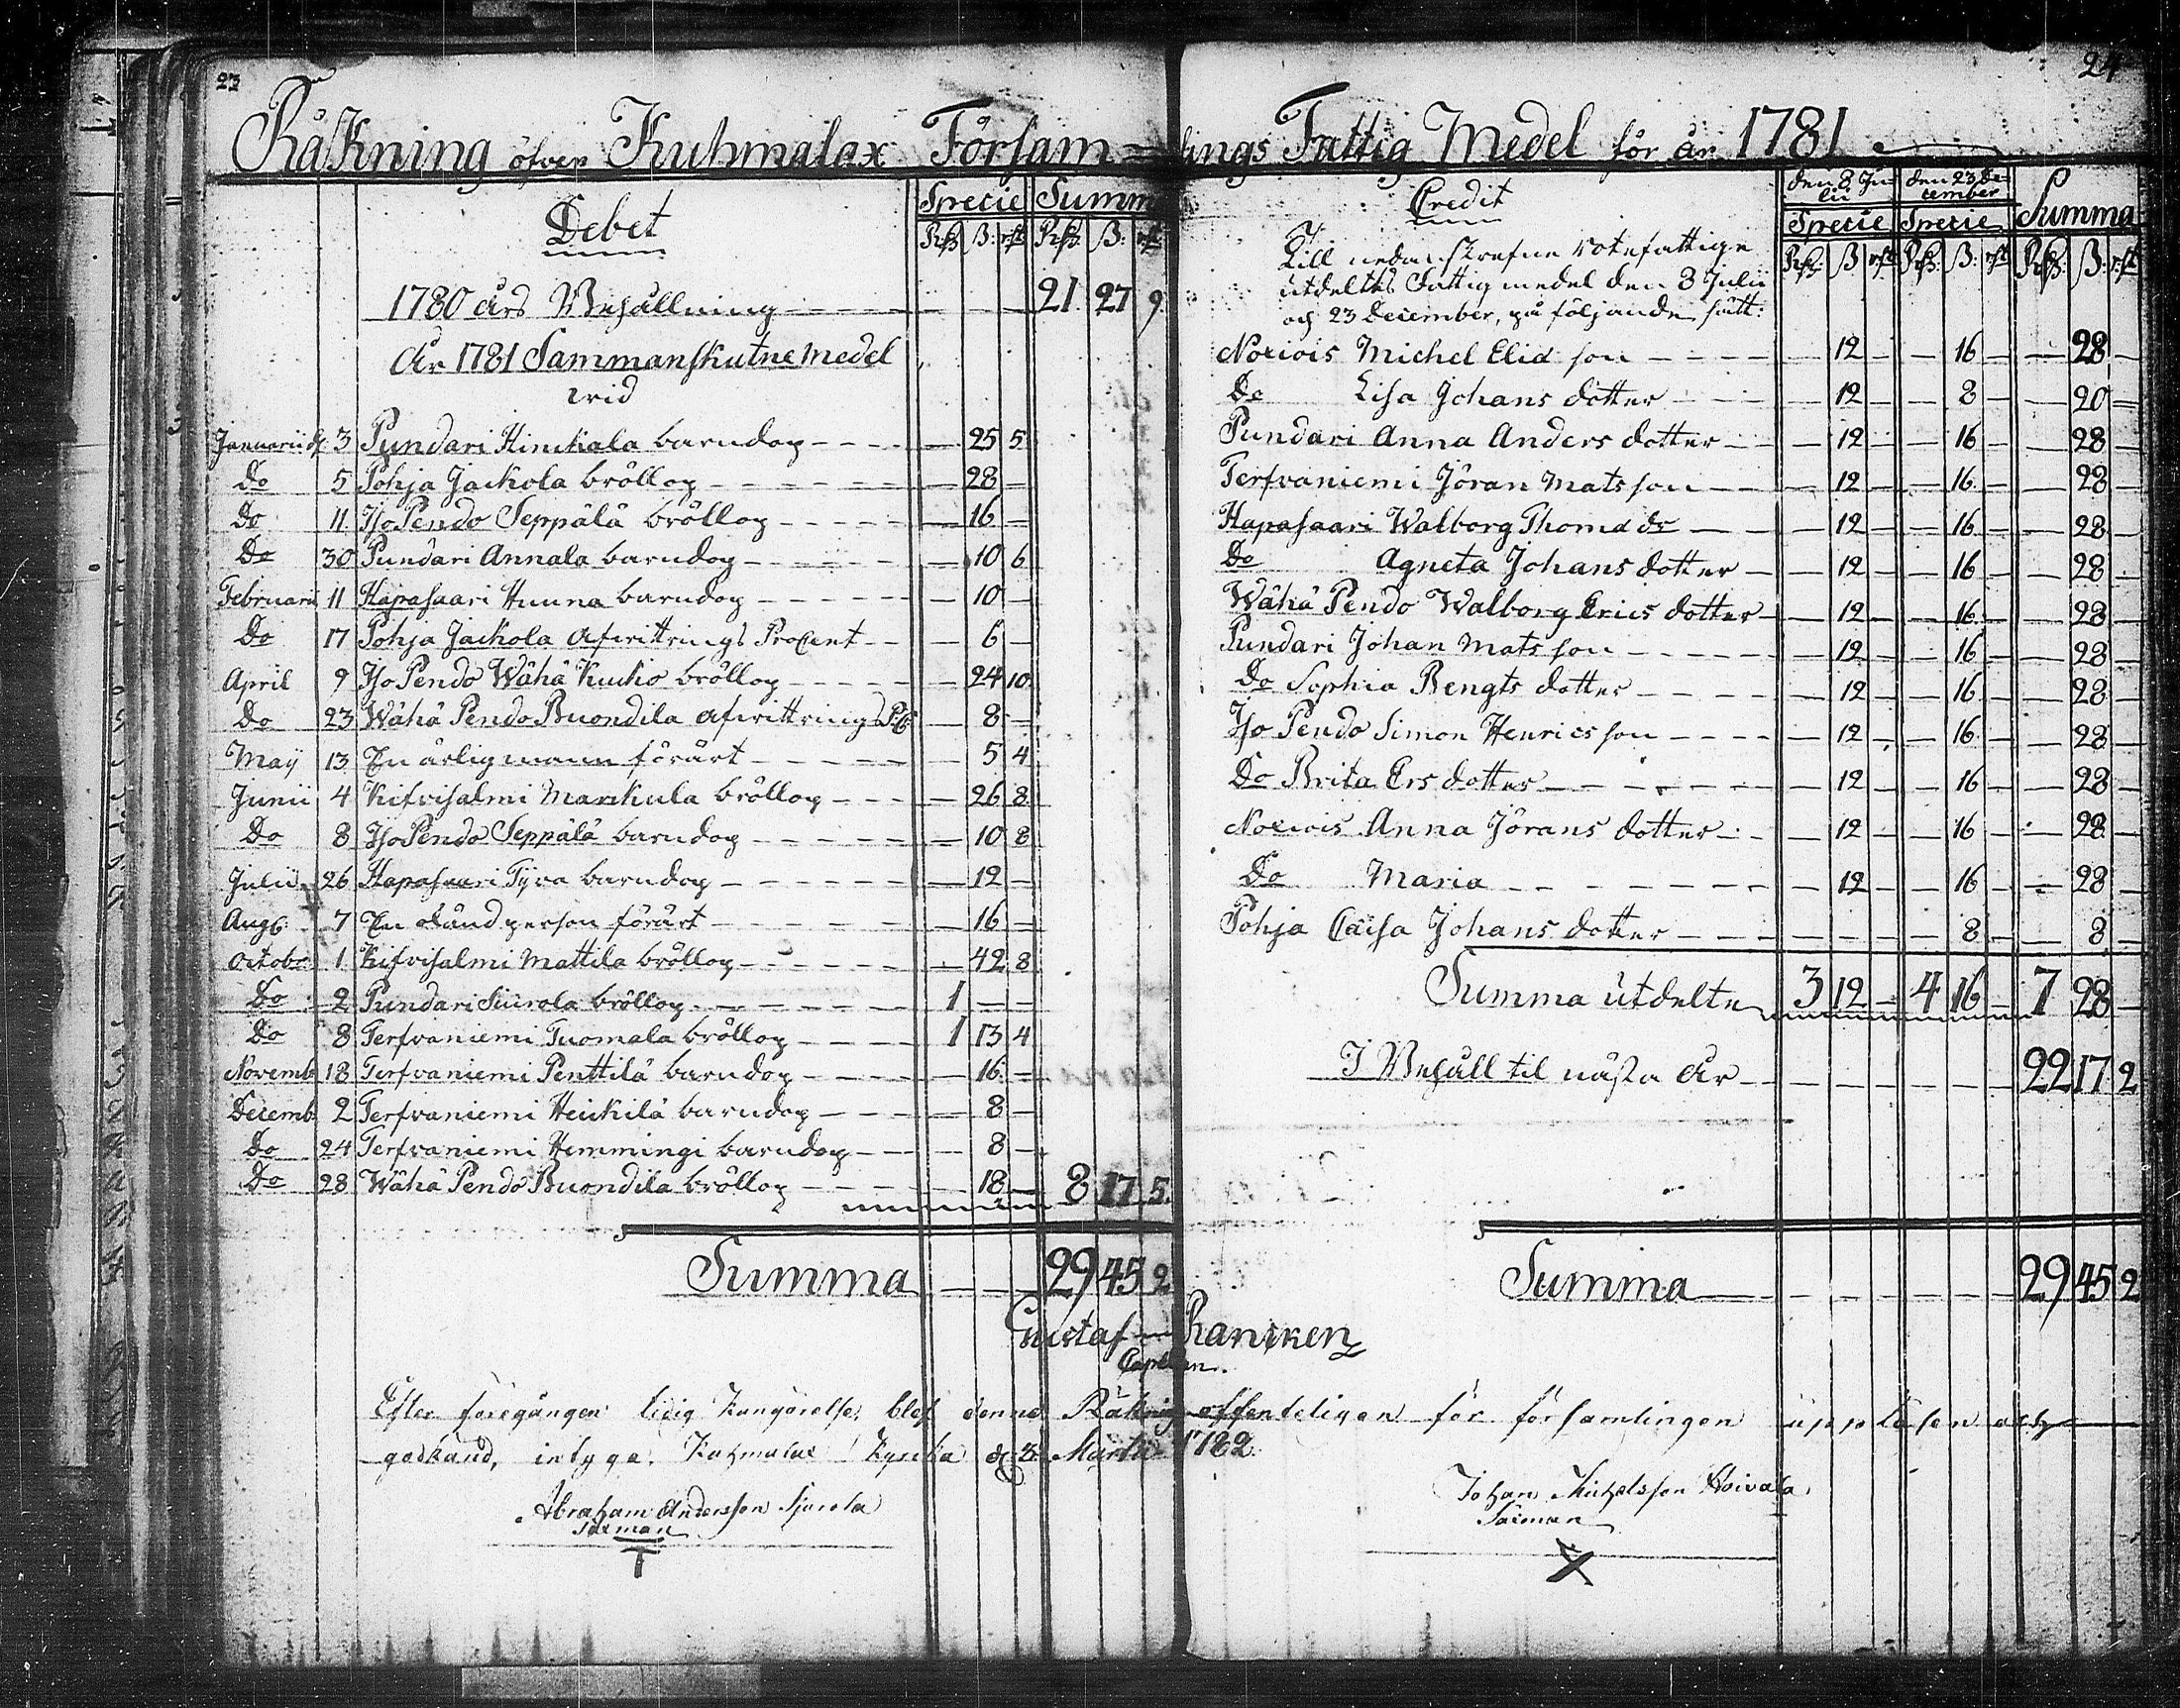 23
24
Räkning öfver Kuhmalax Församlings Fattig Medel för år 1781
Debet Specie Summa
Rd ß: rst Rd ß: rst
1780 års Behållning 21. 27 9.
År 1781 Sammanskutne medel
wid
Januarii d. 3 Pundari Hinckala barndop 25 5
Do 5 Pohja Jackola bröllop 28
Do 11 Iso Pendo Seppälä bröllop 16
Do 30 Pundari Annala barndop 10 6
Februarii 11 Hapasaari Hunna barndop 10
Do 17 Pohja Jackola afvittrings ProCent 6
April 9 Iso Pendo Wähä Kucko bröllop 24 10
Do 23 Wähä Pendo Buondila afvittrings PrC 8
Maij 13 En ärlig mann förärt 5 4
Junii 4 Kifvisalmi Marckula bröllop 26 8
Do 8 Iso Pendo Seppälä barndop 10 8
Julii 26 Hapasaari Tyva barndop 12
Aug. 7 En okänd person förärt 16
Octobr 1 Kifvisalmi Mattila bröllop 42 8
Do 2 Pundari Siurola bröllop 1
Do 8 Terfvaniemi Tuomala bröllop 1 13 4
Novemb 18 Terfvaniemi Penttilä barndop 16
Decemb 2 Terfvaniemi Heickilä barndop 8
Do 24 Terfvaniemi Hemmingi barndop 8
Do 28 Wähä Pendo Buondila bröllop 18 8 17 5.
Summa 29 45 2
Credit den 8 Julii den 23 December
Specie Specie Summa
Rd ß rst Rd ß: rst Rd ß: rst
Till nedanskrefne rotefattige
utdeltes Fattig medel den 8 Julii
och 23 December, på följande sätt:
Noxiois Michel Elia son 12 16 28
Do Lisa Johans dotter 12 8 20
Pundari Anna Anders dotter 12 16 28
Terfvaniemi Jöran Mats son 12 16 28
Hapasaari Walborg Thoma dr 12 16 28
Do Agneta Johans dotter 12 16 28
Wähä Pendo Walborg Erics dotter 12 16 28
Pundari Johan Mats son 12 16 28
Do Sophia Bengts dotter 12 16 28
Iso Pendo Simon Henrics son 12 16 28
Do Brita Ers dotter 12 16 28
Noxiois Anna Jörans dotter 12 16 28
Do Maria 12 16 28
Pohja Caisa Johans dotter 8 8
Summa utdelte 3 12 4 16 7 28
I Behåll til nästa år 22 17 2
Summa 29 45 2
Gustaf Rancken
Capellan.
Efter föregången lidig Kungörelse, blef denne Räkning offenteligen för församlingen uppläsen och
godkänd, intyga. Kuhmalax Kyrcka d. Martii 1782.
Abraham Andersson Sjurola
Säxman
T
Johan Michelsson Hoivala
Säxman
X